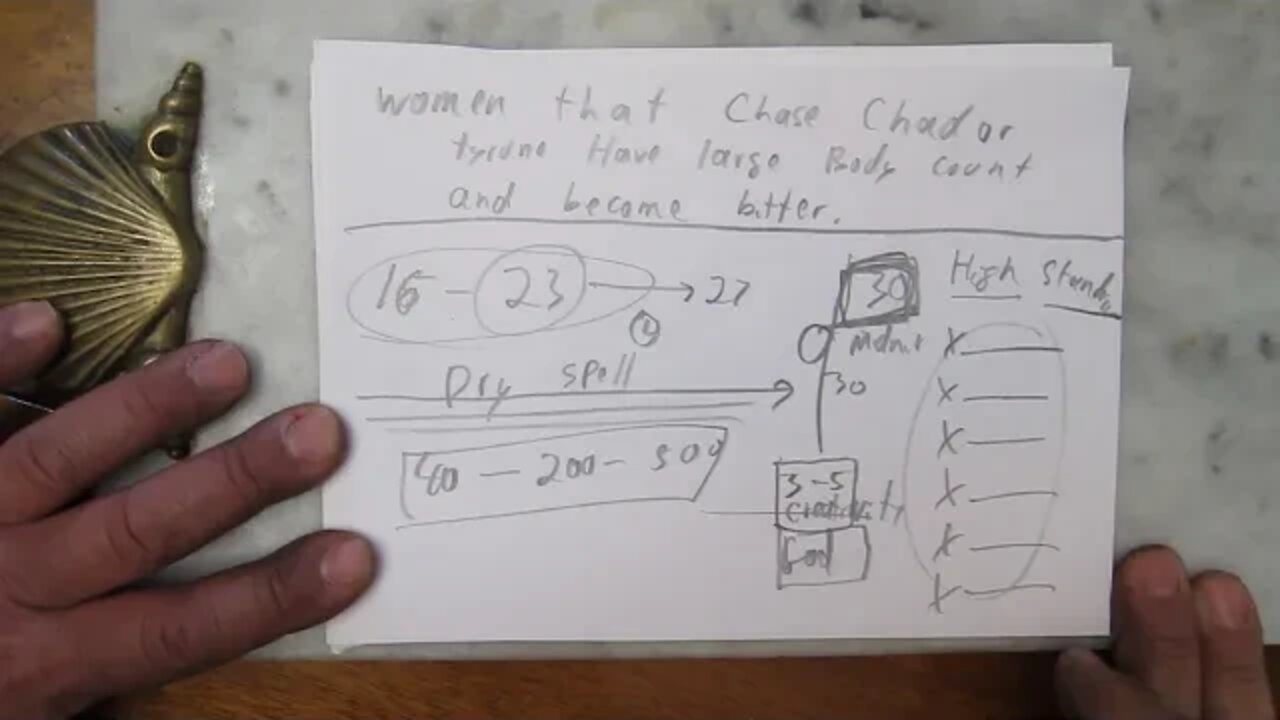 women that Chase Chad or
tyrone Have large Body count
and become bitter.
16 - 23 → 27
30
High Standa
Dry spell
30
X
X
X
X
X
X
- 200 - 500
3-5
God